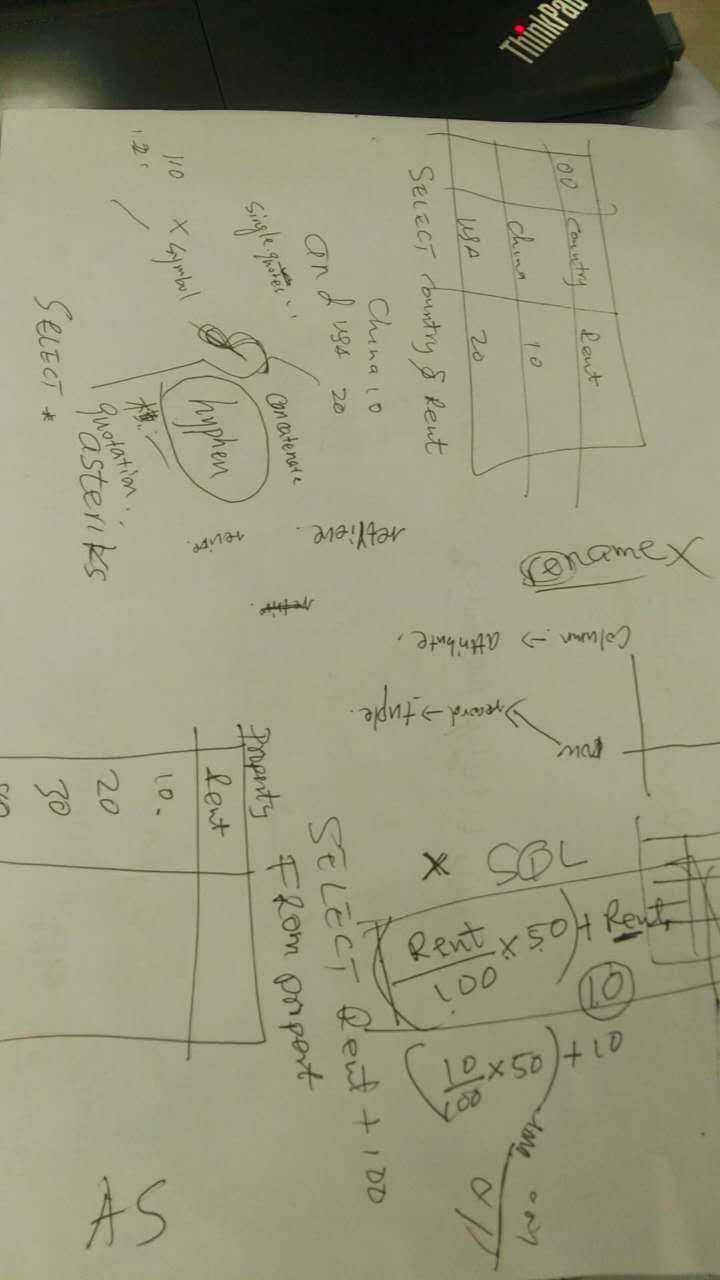 ThinkPad
00 Country Rent
China 10
USA 20
SELECT Country & Rent
China 10
and USA 20
single quotes ' '
110 X symbol
'2'
concatenate
hyphen
quotation.
asteriks
SELECT *
ename X
retlieve.
Column → attribute.
row → record → tuple.
Property
Rent
10.
20
30
SELECT Rent + 100
FROM propert
X SQL
(Rent/100 × 50) + Rent
10
(10/100 × 50) + 10
AS